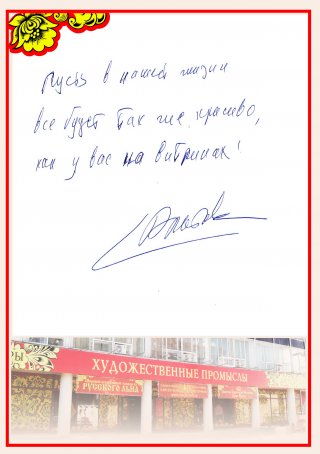 Пусть в нашей жизни
все будет так же красиво,
как у вас на витринах!
ХУДОЖЕСТВЕННЫЕ ПРОМЫСЛЫ
РУССКОГО ЛЬНА